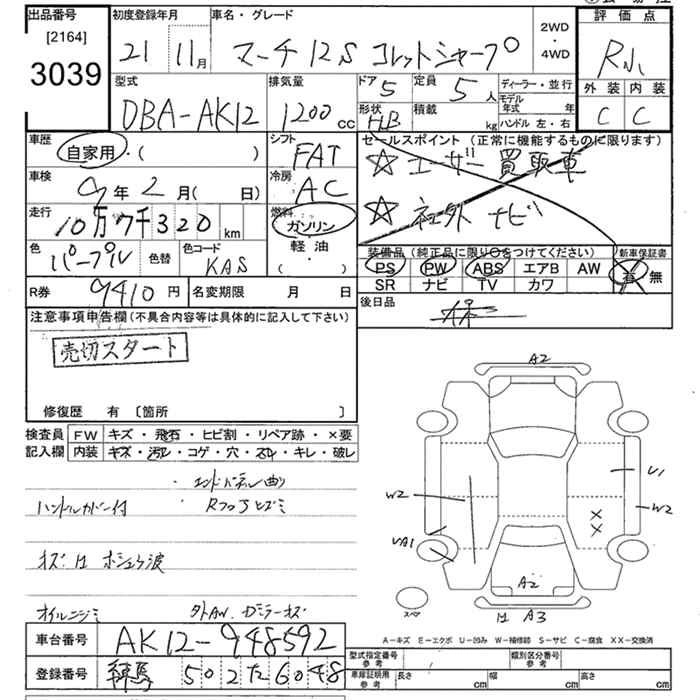 出品番号
[2164]
3039
初度登録年月
21 11月
車名・グレード
マーチ 12S コレットシャープ
2WD
・
4WD
評価点
R小
外装 内装
C C
型式
DBA-AK12
排気量
1200 cc
ドア 5
形状 HB
定員 5人
積載 kg
ディーラー・並行
モデル年式 年
ハンドル 左・右
車歴
自家用・( )
シフト
FAT
車検
9年2月( 日)
冷房
AC
走行
10万7千320km
燃料
ガソリン
軽油
・( )
色
パープル 色替
色コード
KAS
R券 9410円 名変期限 月 日
セールスポイント(正常に機能するものに限ります)
☆ユーザー買取車
☆社外ナビ
装備品(純正品に限り○をつけてください)
PS PW ABS エアB AW
SR ナビ TV カワ
新車保証書
有・無
後日品
注意事項申告欄(不具合内容等は具体的に記入して下さい)
売切スタート
修復歴 有〔箇所 〕
検査員記入欄
FW キズ・飛石・ヒビ割・リペア跡・×要
内装 キズ・汚れ・コゲ・穴・スレ・キレ・破レ
エンドパネル曲り
ハンドルカバー付
RフロアヒズミA2
W2
U1
W2
UA1
A2
A3
スペア
外AW
A-キズ E-エクボ U-凹み W-補修跡 S-サビ C-腐食 XX-交換済
車台番号 AK12-948592
登録番号 練馬 502 た 6048
型式指定番号
参考
類別区分番号
参考
車庫証明用
参考
長さ cm 幅 cm 高さ cm